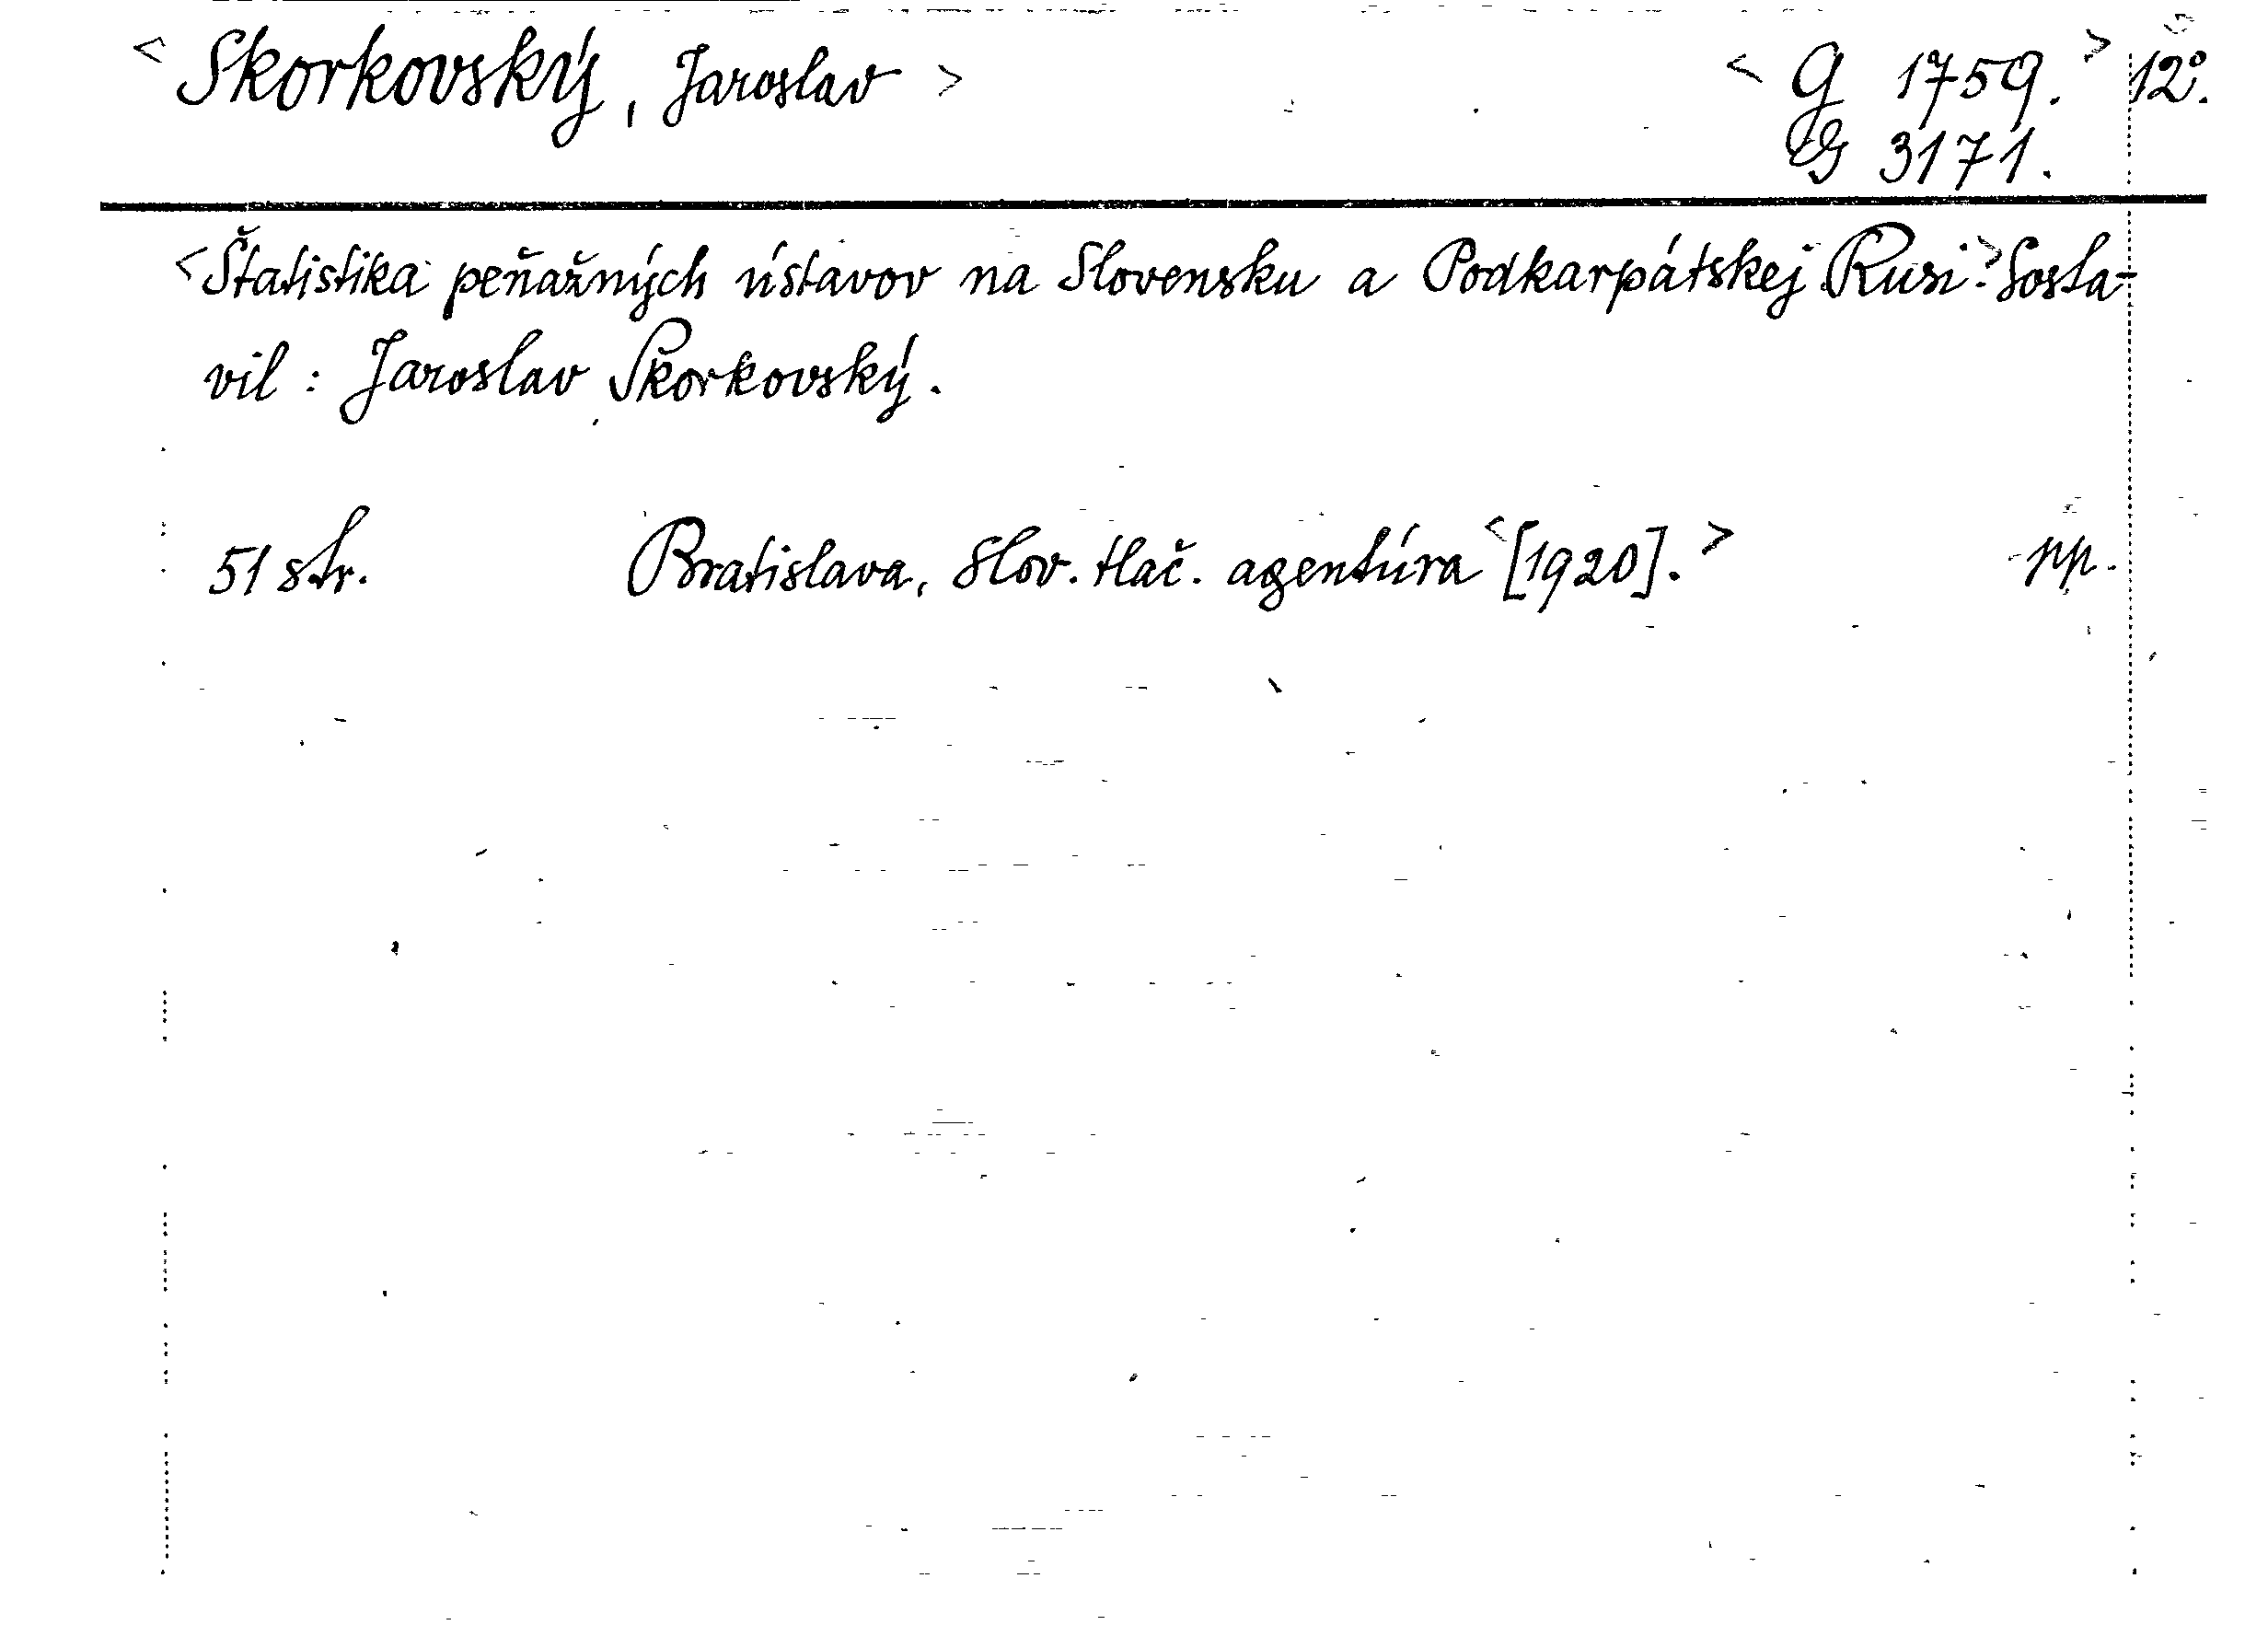 < Skorkovský, Jaroslav > < G 1759. > 12°.
G 3171.
<Štatistika peňažných ústavov na Slovensku a Podkarpátskej Rusi.> Sosta-
vil : Jaroslav Skorkovský.
51 str. Bratislava, Slov. tlač. agentúra <[1920].> pp.